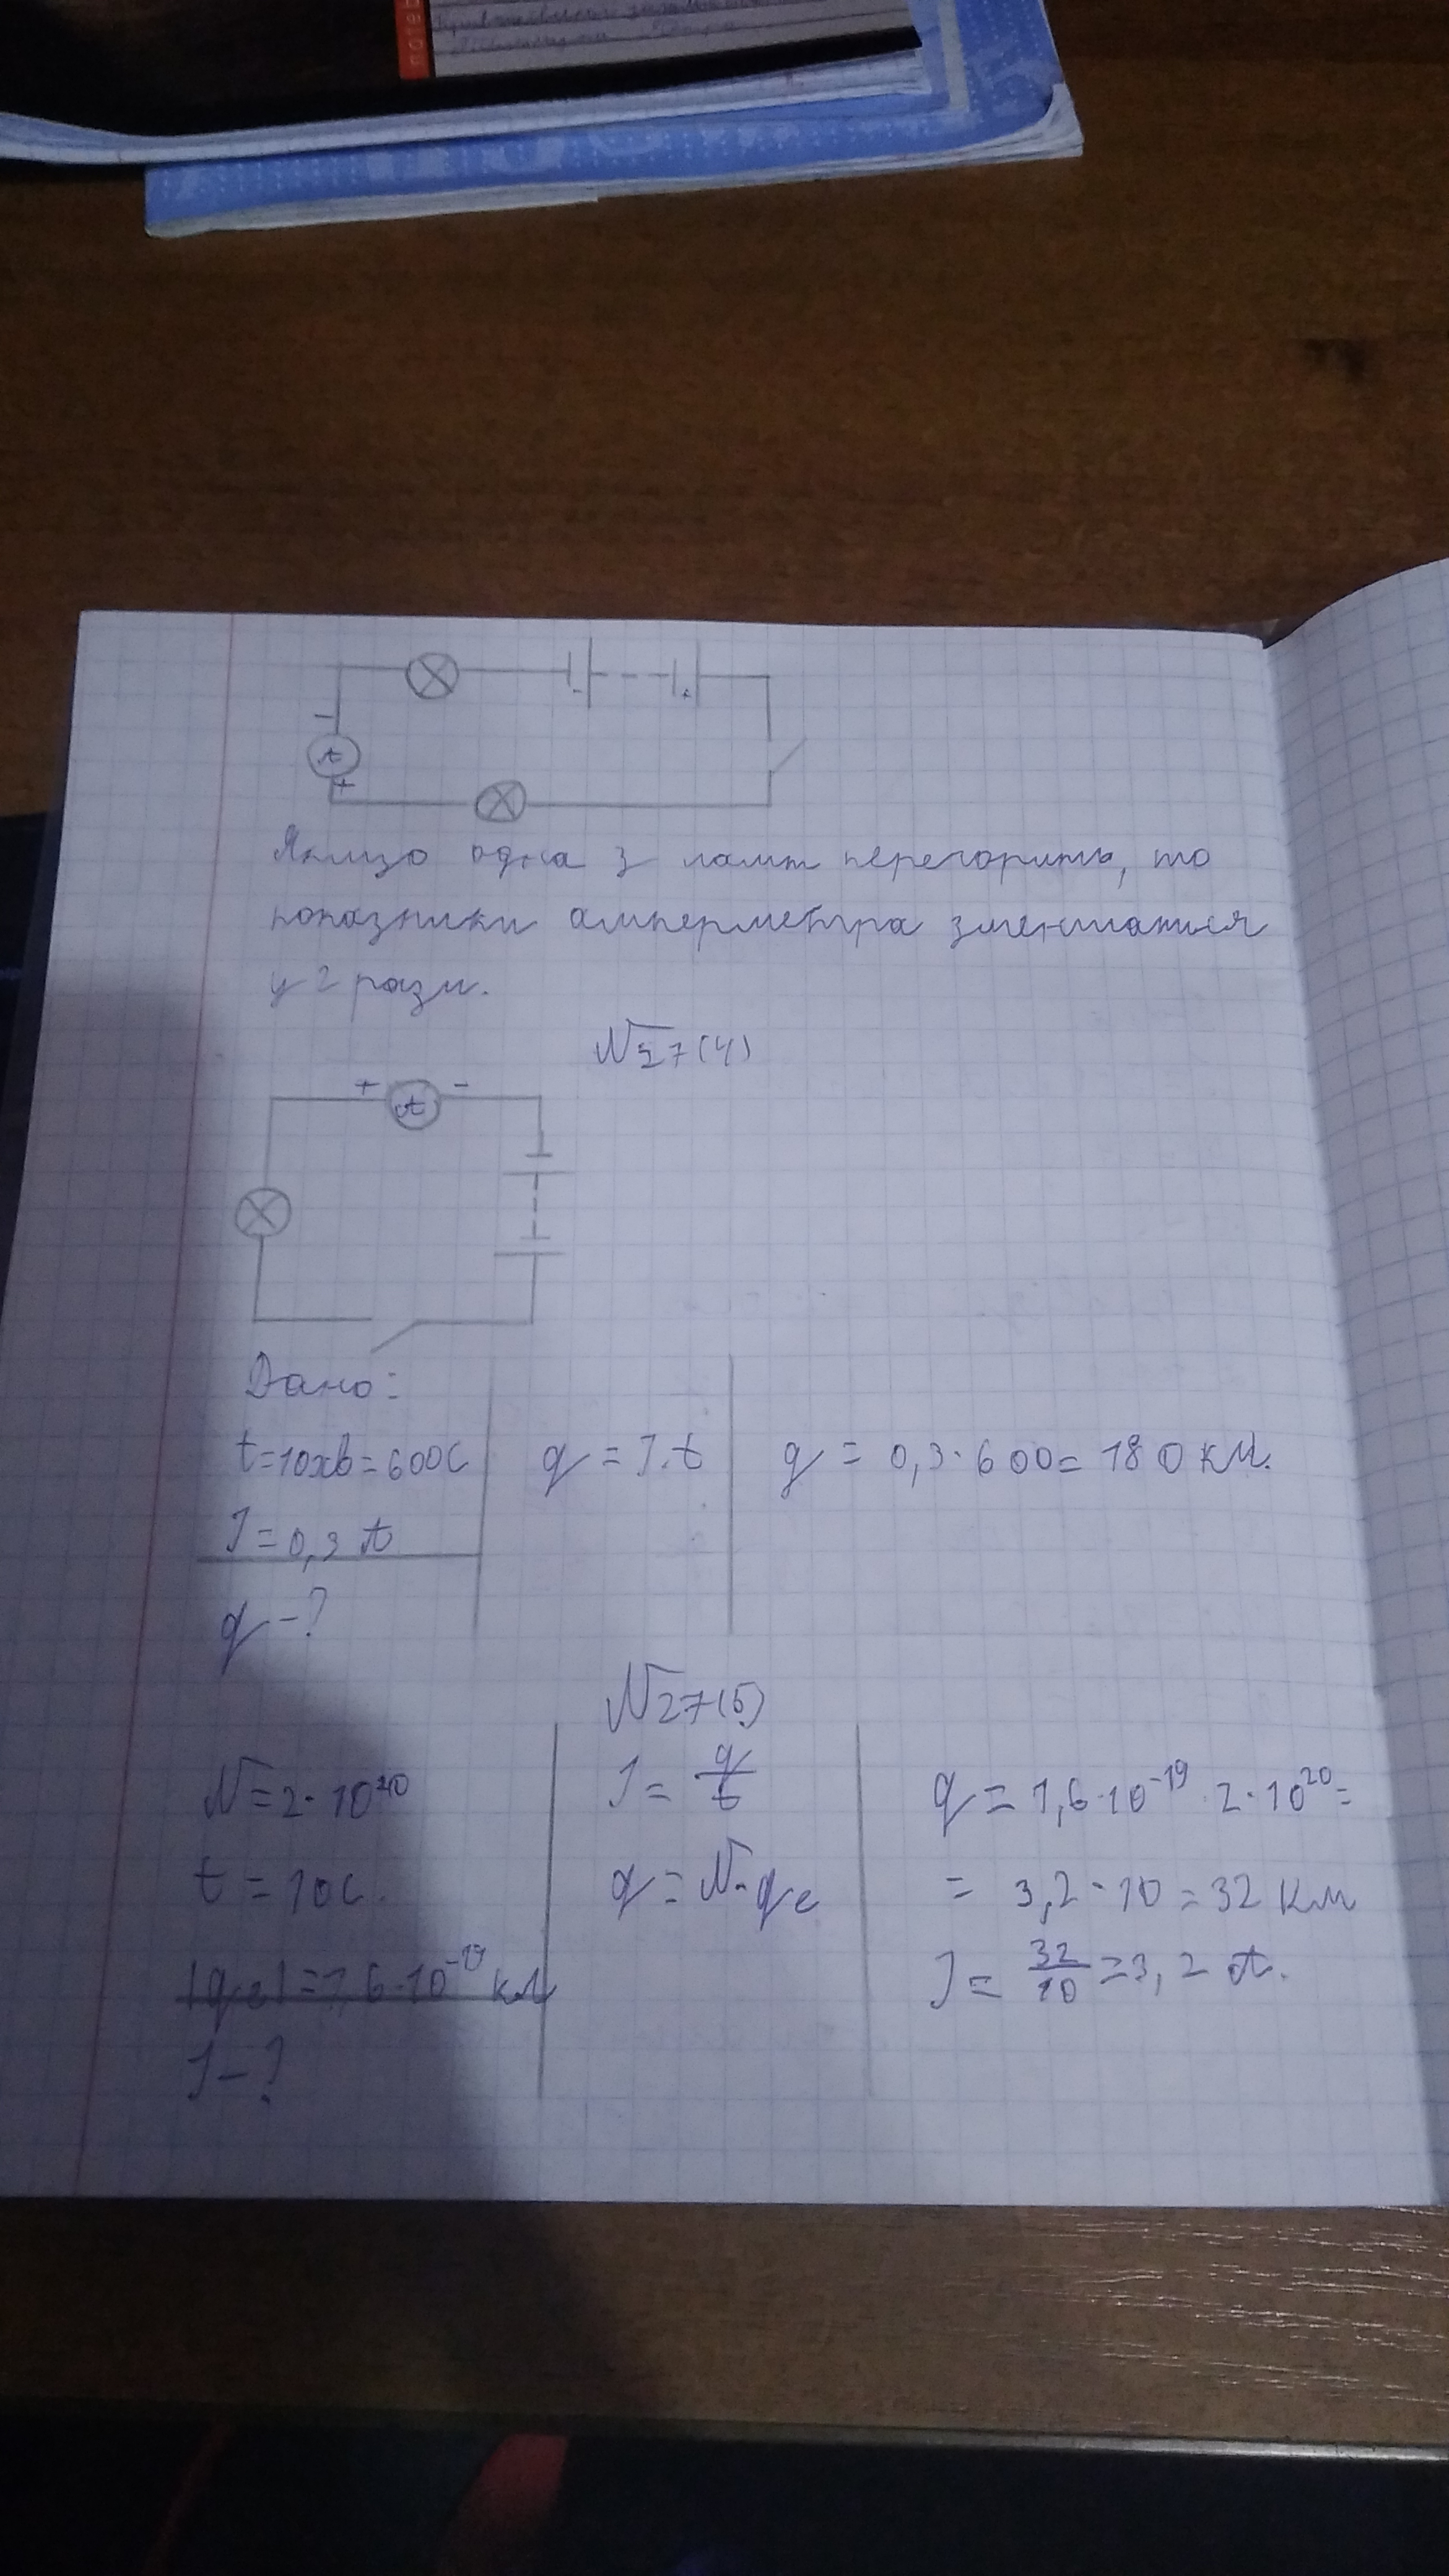 note
- +
- А +
Якщо одна з ламп перегорить, то
показники амперметра зменшаться
у 2 рази.
№27(4)
+ А -
Дано:
t=10хв=600с
I=0,3 А
q-?
q=I.t
q=0,3·600=180 Кл.
№27(5)
N=2·10²⁰
t=10с.
|qe|=1,6·10⁻¹⁹ Кл
I-?
I=q/t
q=N·qe
q=1,6·10⁻¹⁹·2·10²⁰=
=3,2·10=32 Кл
I=32/10=3,2 А.